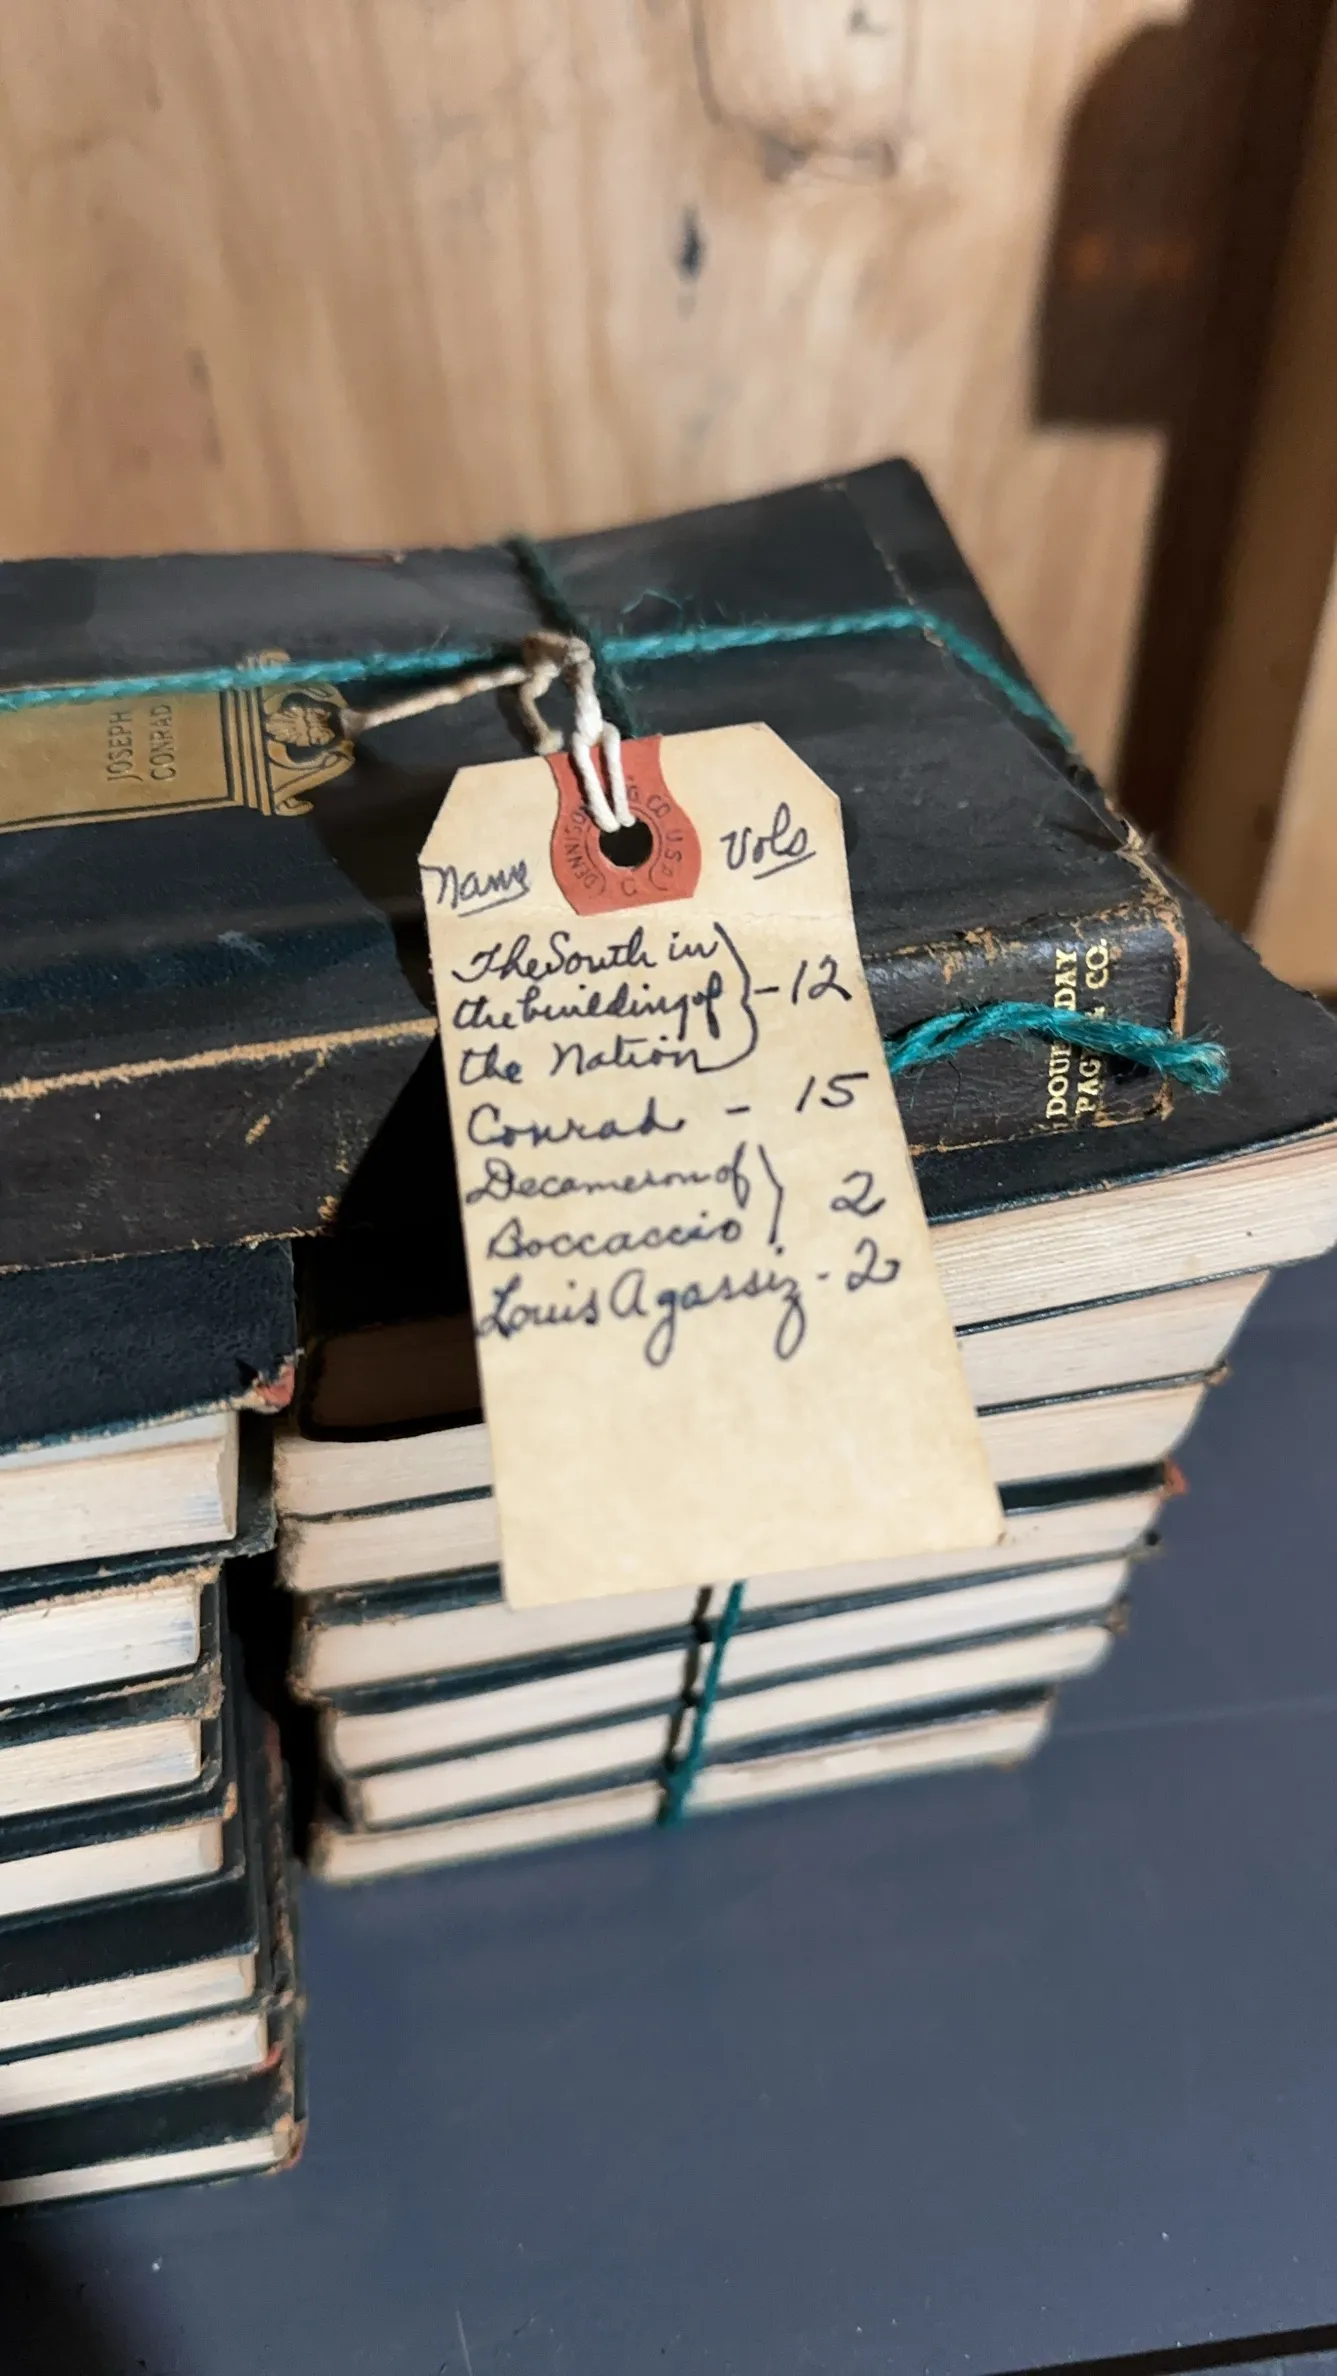 JOSEPH
CONRAD
DENNISON CO U.S.A
Name Vols
The South in
the building of - 12
the Nation
Conrad - 15
Decameron of
Boccaccio 2
Louis Agassiz - 2
DOUBLEDAY
PAGE & CO.